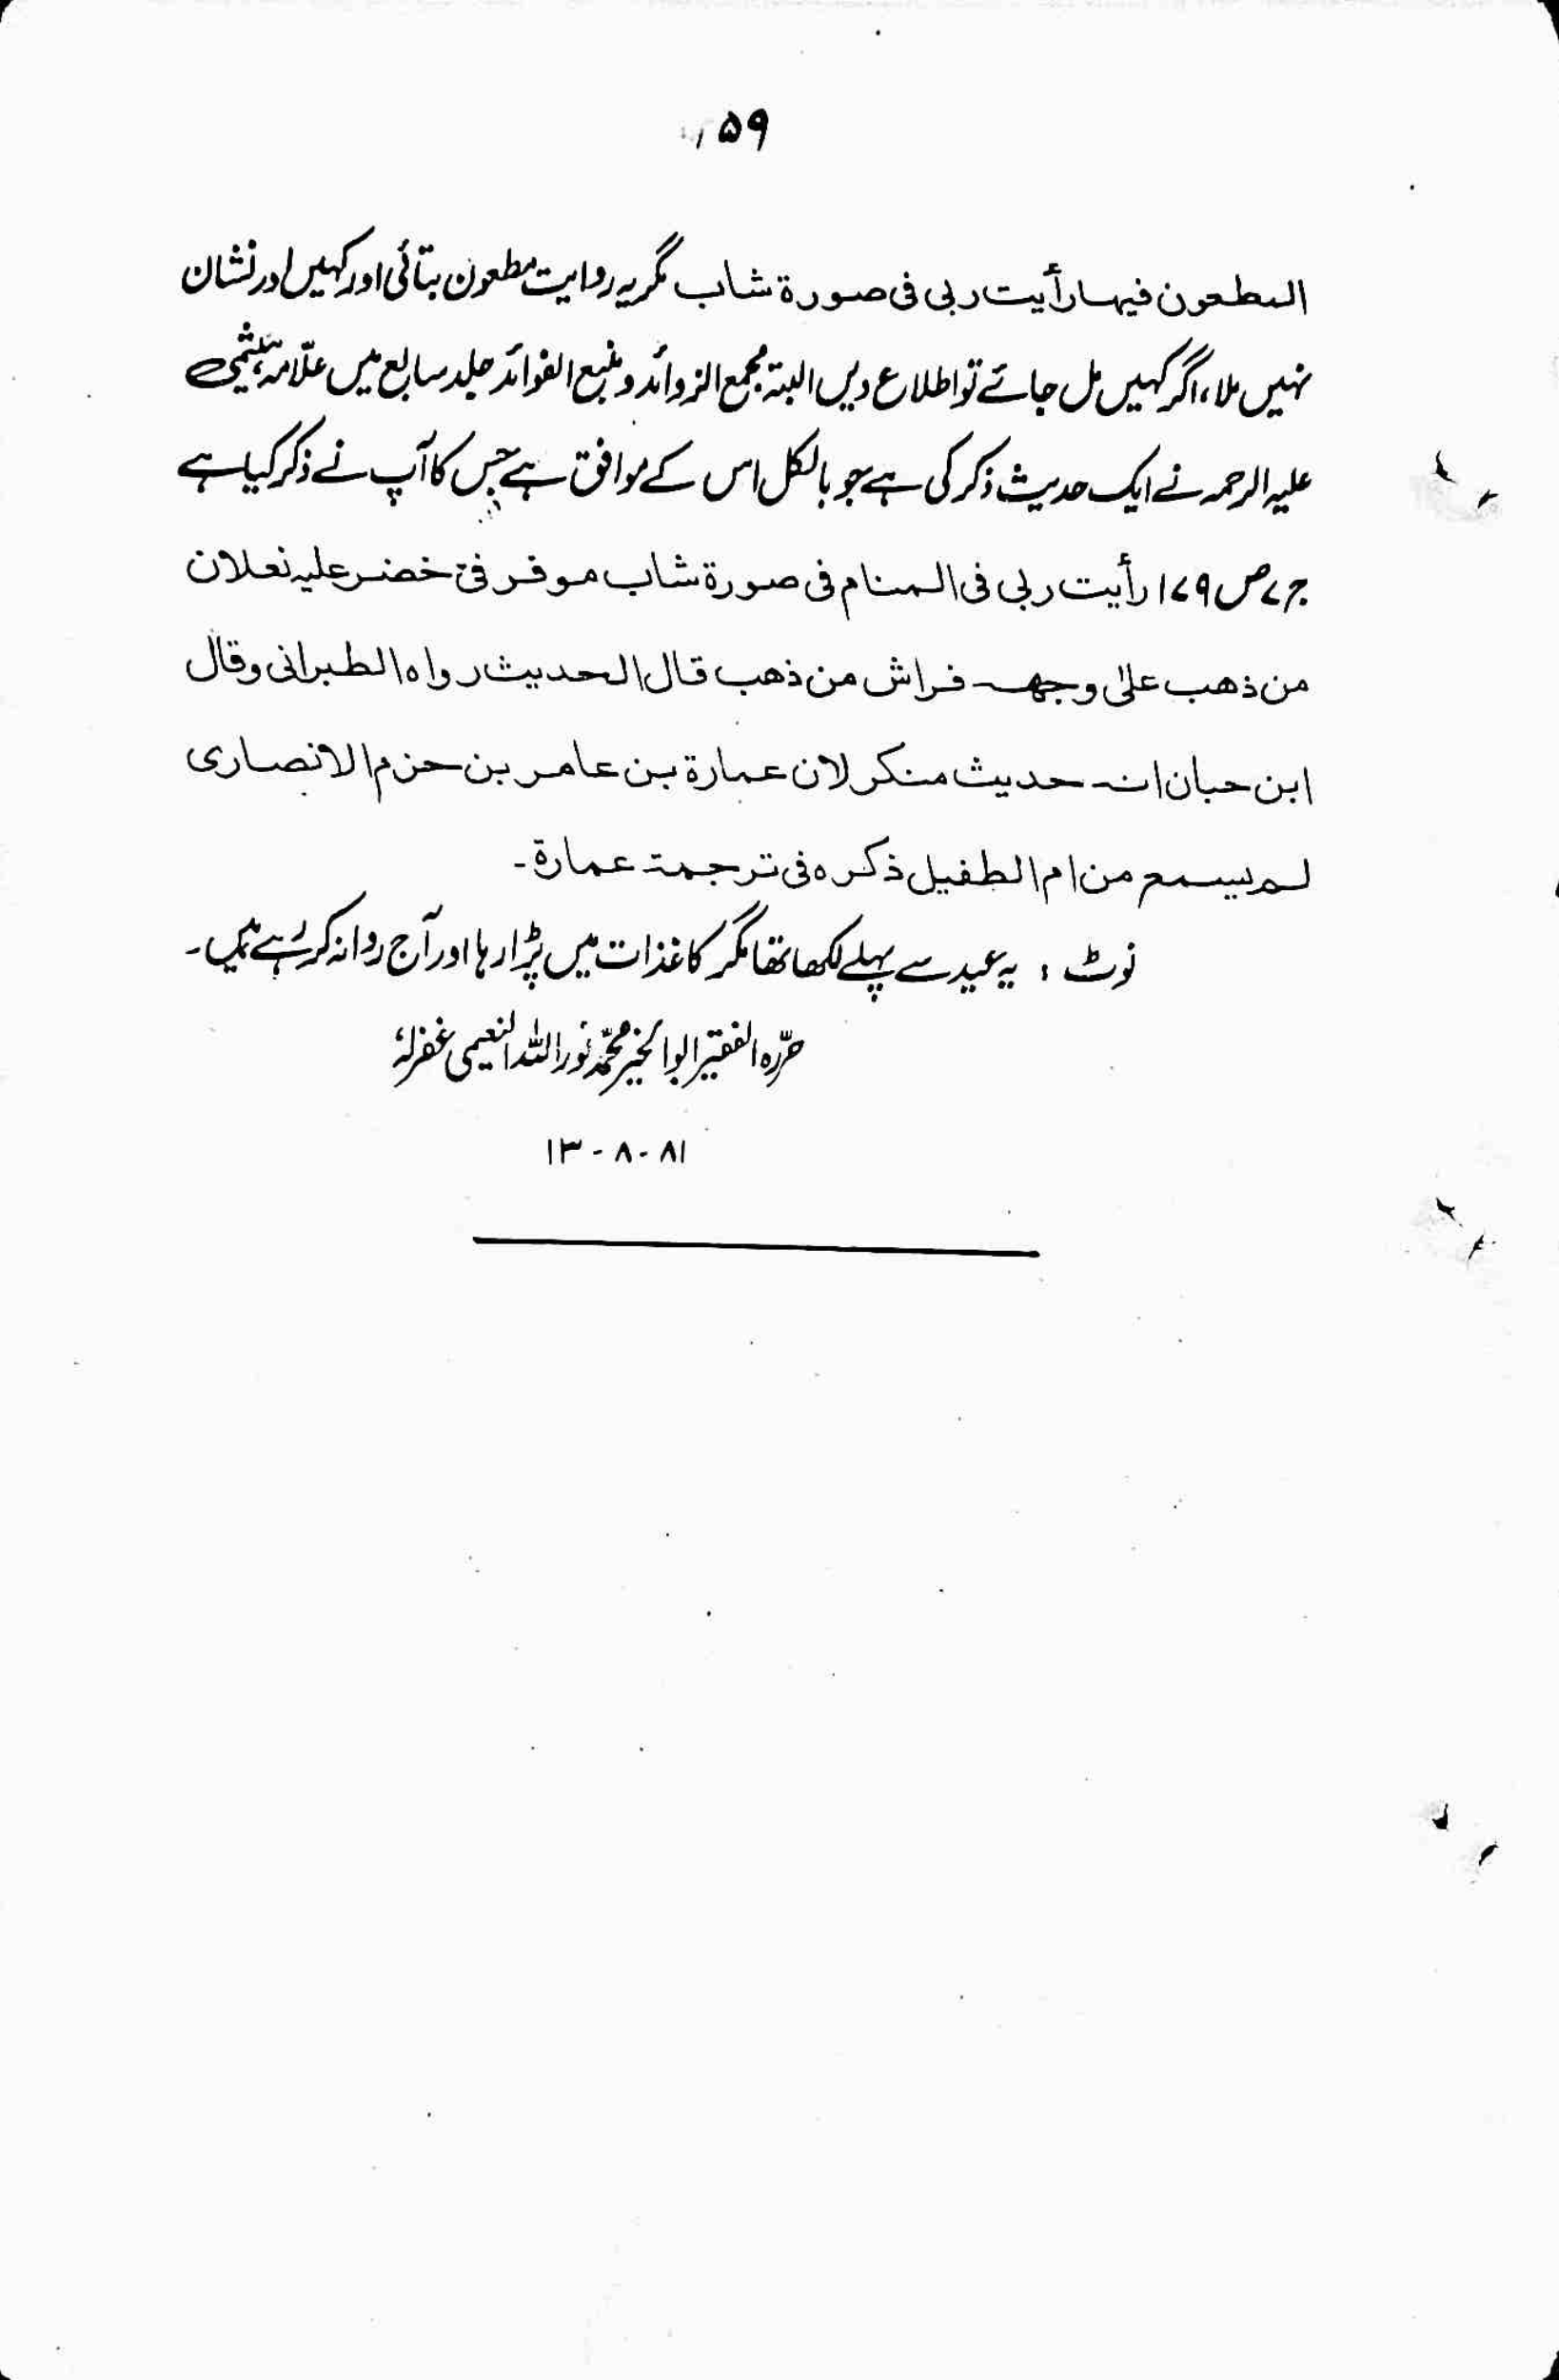 ۵۹
المطعون فیہا رأیت ربی فی صورۃ شاب مگر یہ روایت مطعون بتائی اور کہیں اور نشان
نہیں ملا، اگر کہیں مل جائے تو اطلاع دیں البتہ مجمع الزوائد و منبع الفوائد جلد سابع میں علّامہ ہیثمی
علیہ الرحمہ نے ایک حدیث ذکر کی ہے جو بالکل اس کے موافق ہے جس کا آپ نے ذکر کیا ہے
ج ۷ ص ۱۷۹ رأیت ربی فی المنام فی صورۃ شاب موفر فی خضر علیہ نعلان
من ذهب علیٰ وجهہ فراش من ذهب قال الحدیث رواہ الطبرانی وقال
ابن حبان انہ حدیث منکر لان عمارۃ بن عامر بن حزم الانصاری
لم یسمع من ام الطفیل ذکرہ فی ترجمۃ عمارۃ۔
نوٹ : یہ عید سے پہلے لکھا تھا مگر کاغذات میں پڑا رہا اور آج روانہ کر رہے ہیں۔
حرّرہ الفقیر ابو الخیر محمّد نور اللہ النعیمی غفرلہٗ
۱۳-۸-۸۱